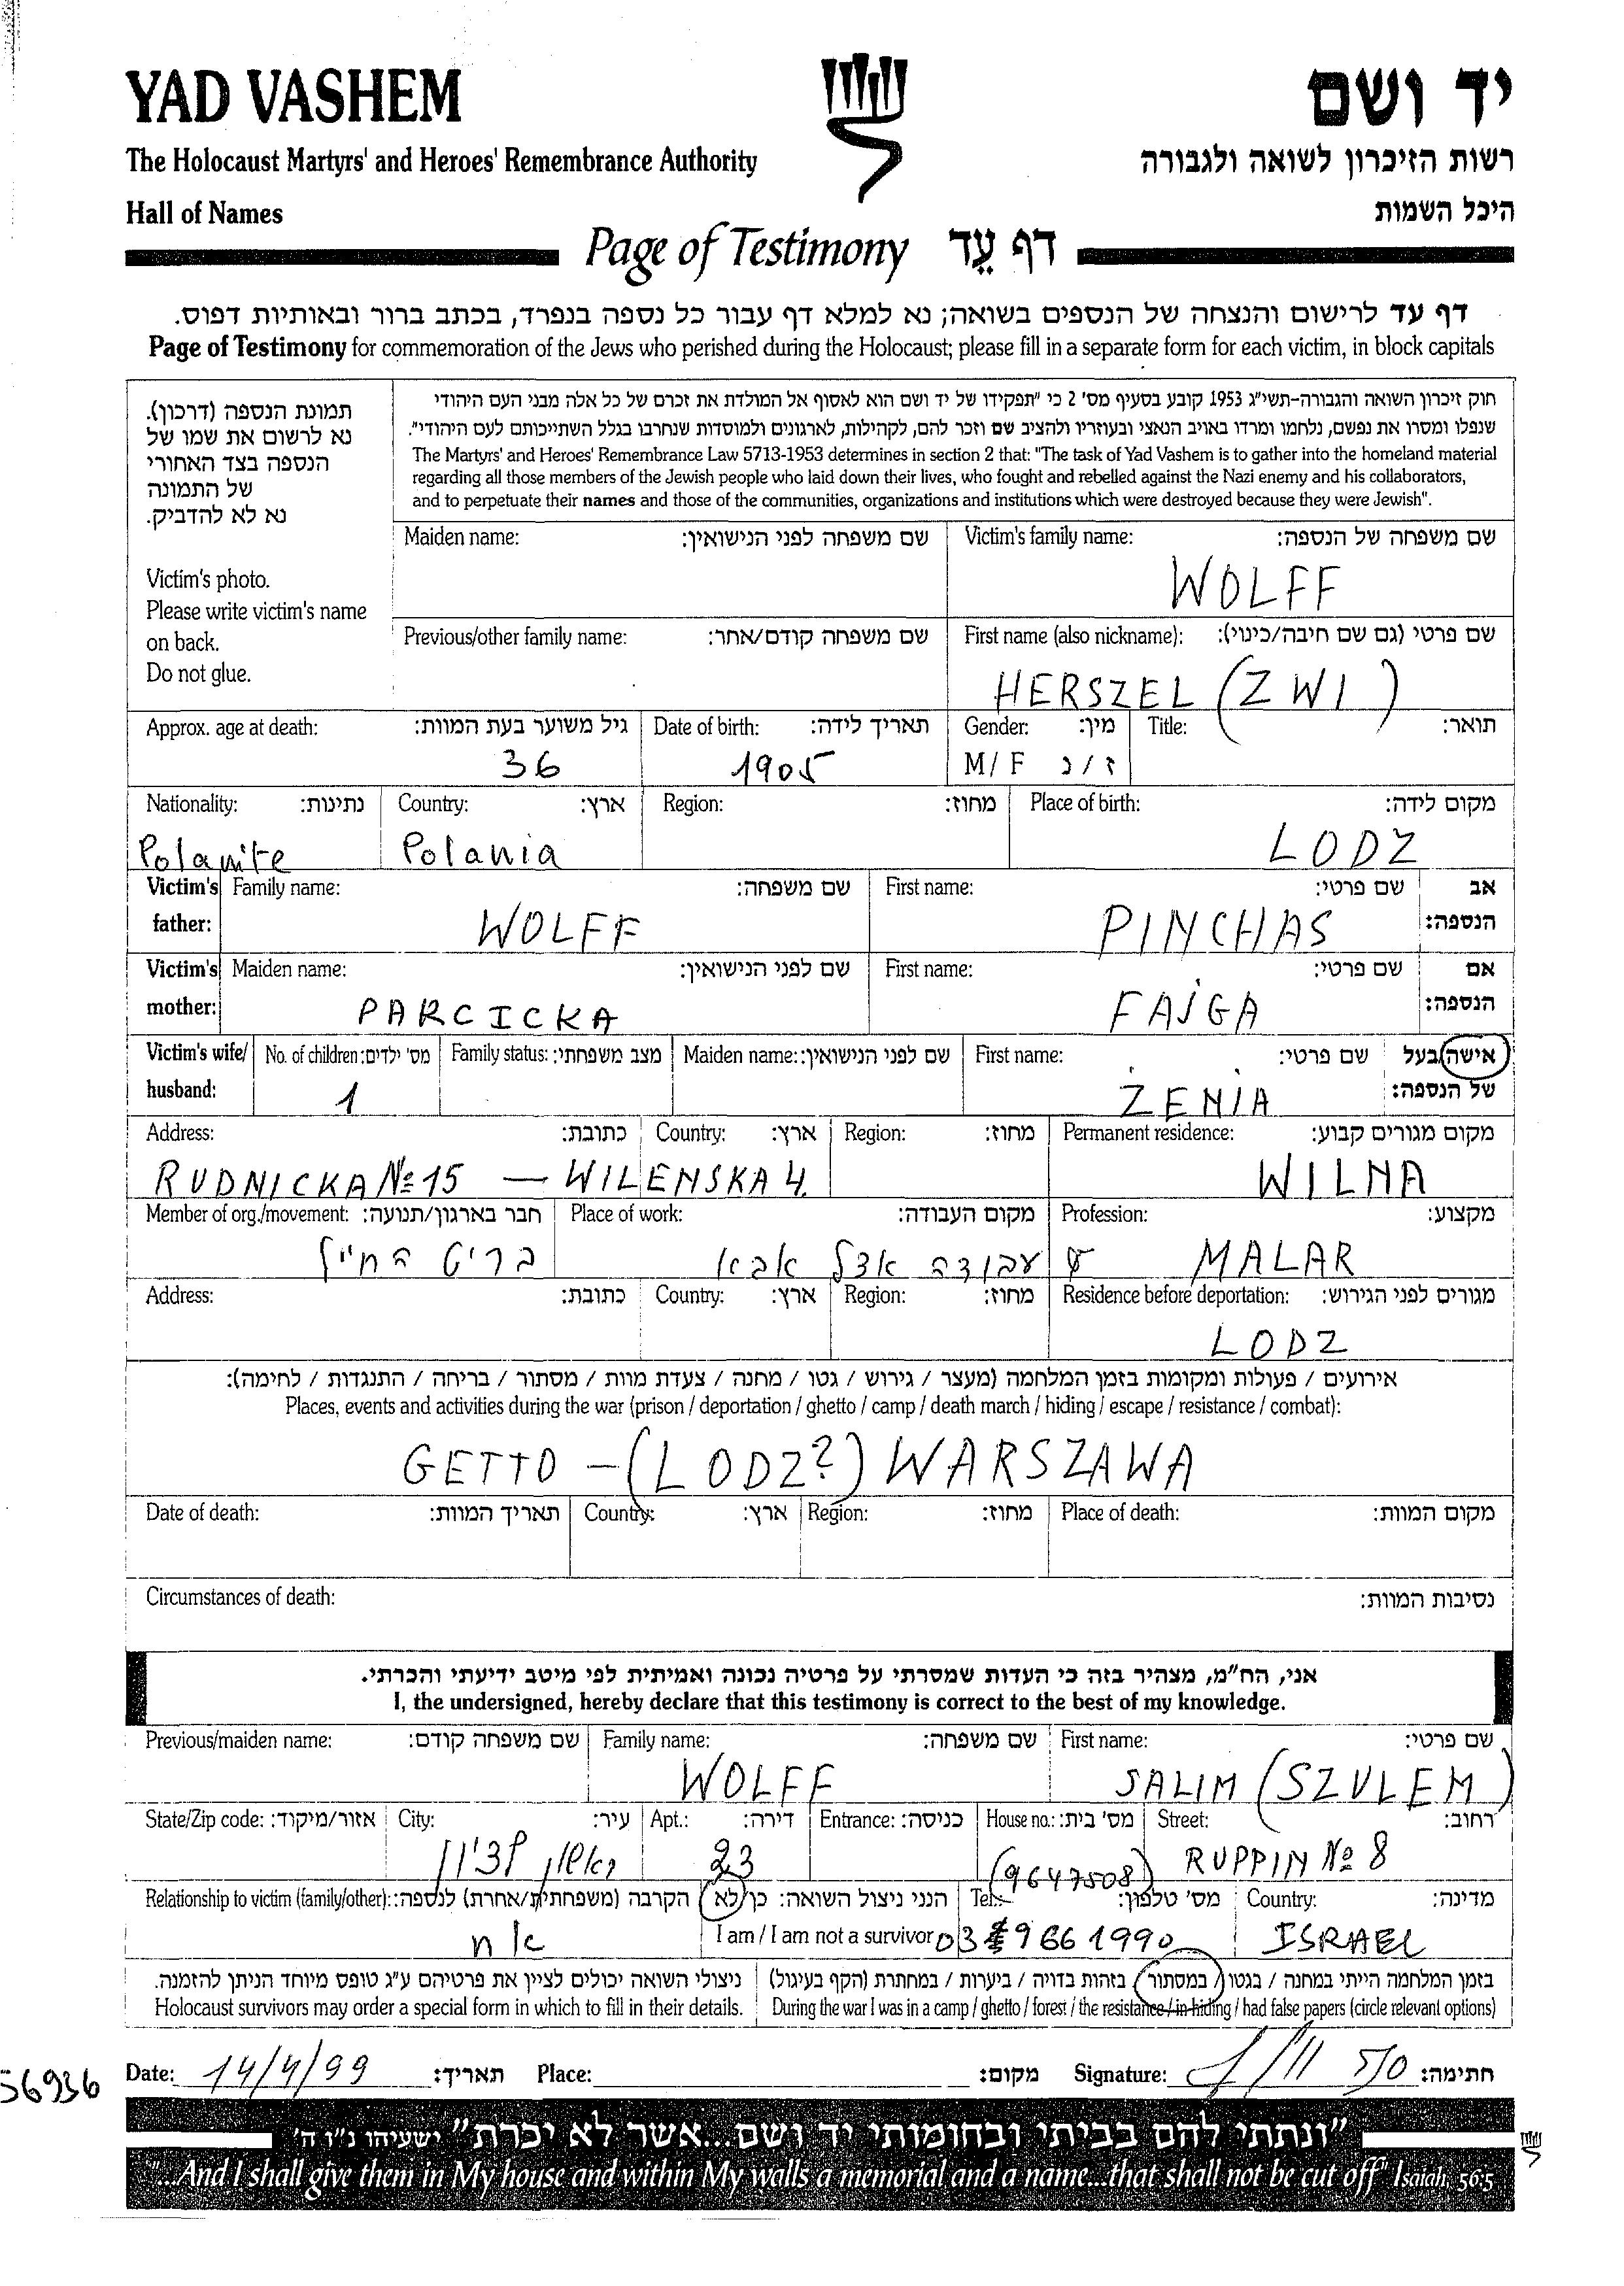 YAD VASHEM
יד ושם
The Holocaust Martyrs' and Heroes' Remembrance Authority
רשות הזיכרון לשואה ולגבורה
Hall of Names
היכל השמות
Page of Testimony דף עֵד
דף עד לרישום והנצחה של הנספים בשואה; נא למלא דף עבור כל נספה בנפרד, בכתב ברור ובאותיות דפוס.
Page of Testimony for commemoration of the Jews who perished during the Holocaust; please fill in a separate form for each victim, in block capitals
תמונת הנספה (דרכון).
נא לרשום את שמו של
הנספה בצד האחורי
של התמונה
נא לא להדביק.
Victim's photo.
Please write victim's name
on back.
Do not glue.
חוק זיכרון השואה והגבורה-תשי"ג 1953 קובע בסעיף מס' 2 כי "תפקידו של יד ושם הוא לאסוף אל המולדת את זכרם של כל אלה מבני העם היהודי
שנפלו ומסרו את נפשם, נלחמו ומרדו באויב הנאצי ובעוזריו ולהציב שם וזכר להם, לקהילות, לארגונים ולמוסדות שנחרבו בגלל השתייכותם לעם היהודי".
The Martyrs' and Heroes' Remembrance Law 5713-1953 determines in section 2 that: "The task of Yad Vashem is to gather into the homeland material
regarding all those members of the Jewish people who laid down their lives, who fought and rebelled against the Nazi enemy and his collaborators,
and to perpetuate their names and those of the communities, organizations and institutions which were destroyed because they were Jewish".
Maiden name: שם משפחה לפני הנישואין: Victim's family name: שם משפחה של הנספה:
WOLFF
Previous/other family name: שם משפחה קודם/אחר: First name (also nickname): שם פרטי (גם שם חיבה/כינוי):
HERSZEL (ZWI)
Approx. age at death: גיל משוער בעת המוות: Date of birth: תאריך לידה: Gender: מין: Title: תואר:
36 1905 M/F ז/נ
Nationality: נתינות: Country: ארץ: Region: מחוז: Place of birth: מקום לידה:
Polanite Polania LODZ
Victim's father: Family name: שם משפחה: First name: שם פרטי: אב הנספה:
WOLFF PINCHAS
Victim's mother: Maiden name: שם לפני הנישואין: First name: שם פרטי: אם הנספה:
PARCICKA FAJGA
Victim's wife/ husband: No. of children: מס' ילדים: Family status: מצב משפחתי: Maiden name: שם לפני הנישואין: First name: שם פרטי: אישה/בעל של הנספה:
1 ŻENIA
Address: כתובת: Country: ארץ: Region: מחוז: Permanent residence: מקום מגורים קבוע:
RUDNICKA № 15 — WILENSKA 4. WILNA
Member of org./movement: חבר בארגון/תנועה: Place of work: מקום העבודה: Profession: מקצוע:
ברית החייל עבודה אצל אבא MALAR
Address: כתובת: Country: ארץ: Region: מחוז: Residence before deportation: מגורים לפני הגירוש:
LODZ
אירועים / פעולות ומקומות בזמן המלחמה (מעצר / גירוש / גטו / מחנה / צעדת מוות / מסתור / בריחה / התנגדות / לחימה):
Places, events and activities during the war (prison / deportation / ghetto / camp / death march / hiding / escape / resistance / combat):
GETTO – (LODZ?) WARSZAWA
Date of death: תאריך המוות: Country: ארץ: Region: מחוז: Place of death: מקום המוות:
Circumstances of death: נסיבות המוות:
אני, הח"מ, מצהיר בזה כי העדות שמסרתי על פרטיה נכונה ואמיתית לפי מיטב ידיעתי והכרתי.
I, the undersigned, hereby declare that this testimony is correct to the best of my knowledge.
Previous/maiden name: שם משפחה קודם: Family name: שם משפחה: First name: שם פרטי:
WOLFF SALIM (SZULEM)
State/Zip code: אזור/מיקוד: City: עיר: Apt.: דירה: Entrance: כניסה: House no.: מס' בית: Street: רחוב:
ראשון לציון 23 RUPPIN № 8
(9647508)
Relationship to victim (family/other): הקרבה (משפחתית/אחרת) לנספה: הנני ניצול השואה: כן/לא Tel.: מס' טלפון: Country: מדינה:
אח I am / I am not a survivor 03 9661990 ISRAEL
ניצולי השואה יכולים לציין את פרטיהם ע"ג טופס מיוחד הניתן להזמנה. בזמן המלחמה הייתי במחנה / בגטו / במסתור / בזהות בדויה / ביערות / במחתרת (הקף בעיגול)
Holocaust survivors may order a special form in which to fill in their details. During the war I was in a camp / ghetto / forest / the resistance / in hiding / had false papers (circle relevant options)
Date: 14/4/99 תאריך: Place: מקום: Signature: חתימה:
56936
"ונתתי להם בביתי ובחומותי יד ושם...אשר לא יכרת" ישעיהו נ"ו ה'
"...And I shall give them in My house and within My walls a memorial and a name...that shall not be cut off" Isaiah 56:5